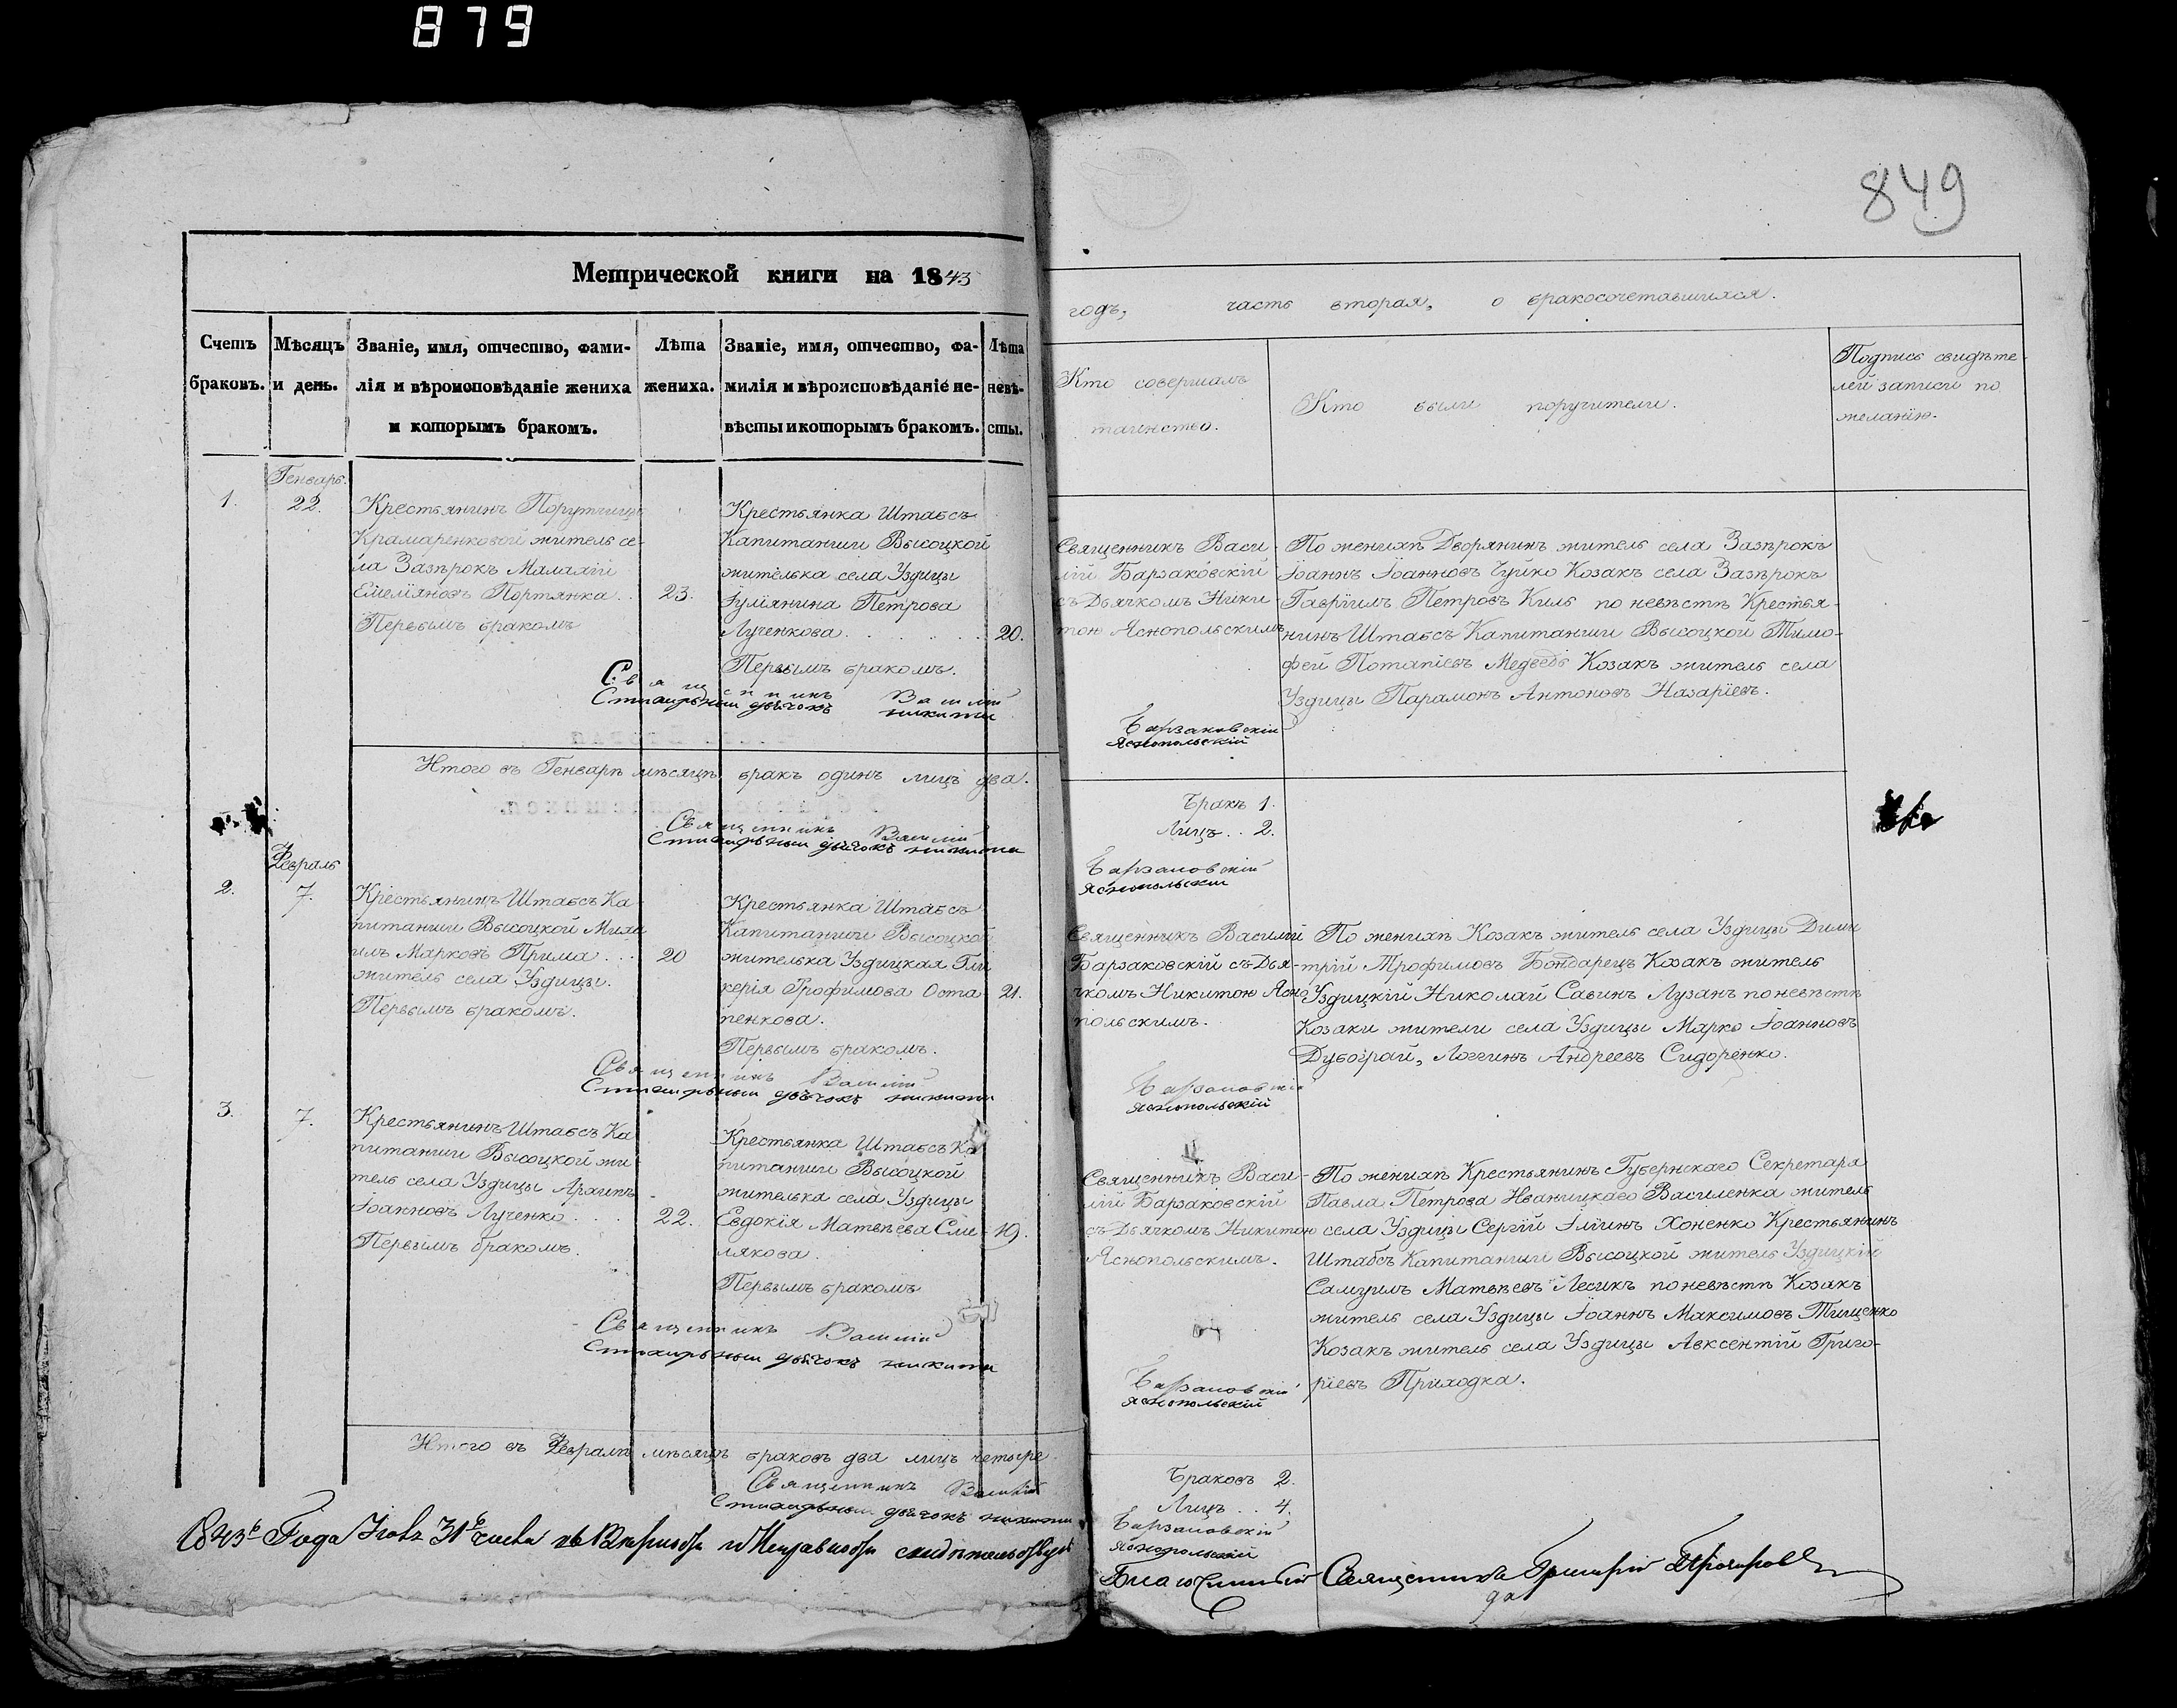 879
849
Метрической книги на 1843
годъ, часть вторая, о бракосочетавшихся.
Счетъ браковъ.
Мѣсяцъ и день.
Званіе, имя, отчество, фами-
лія и вѣроисповѣданіе жениха
и которымъ бракомъ.
Лѣта
жениха.
Званіе, имя, отчество, фа-
милія и вѣроисповѣданіе не-
вѣсты и которымъ бракомъ.
Лѣта
невѣ-
сты.
Кто совершалъ
таинство.
Кто были поручители.
Подпись свидѣте-
лей записи по
желанію.
Генварь.
1.
22.
Крестьянинъ Порутчицы
Крамаренковой житель се-
ла Зазѣрокъ Малахій
Емеліяновъ Портянка . .
Первымъ бракомъ
23.
Крестьянка Штабсъ
Капитанши Высоцкой
жителька села Уздицы
Іуліянина Петрова
Лученкова . . . . . .
Первымъ бракомъ.
20.
Священникъ Васи-
лій Барзаковскій
съ Дьячкомъ Ники-
тою Яснопольскимъ
По женихѣ Дворянинъ житель села Зазѣрокъ
Іоаннъ Іоанновъ Чуйко Козакъ села Зазѣрокъ
Гавріилъ Петровъ Киль по невѣстѣ Крестья-
нинъ Штабсъ Капитанши Высоцкой Тимо-
фей Потапіевъ Медведь Козакъ житель села
Уздицы Парамонъ Антоновъ Назаріевъ.
Священникъ Василій Барзаковскій
Стихарный дьячокъ Никита Яснопольскій
Итого въ Генварѣ мѣсяцѣ бракъ одинъ лицъ два.
Бракъ 1.
Лицъ . . 2.
Священникъ Василій Барзаковскій
Стихарный дьячокъ Никита Яснопольскій
Февраль
2.
7.
Крестьянинъ Штабсъ Ка
питанши Высоцкой Миха
илъ Марковъ Прима . . .
житель села Уздицы.
Первымъ бракомъ.
20
Крестьянка Штабсъ
Капитанши Высоцкой
жителька Уздицкая Гли
керія Трофимова Оста
пенкова.
Первымъ бракомъ.
21.
Священникъ Василій
Барзаковскій съ Дья-
чкомъ Никитою Ясно
польскимъ.
По женихѣ Козакъ житель села Уздицы Дими
трій Трофимовъ Бондарецъ Козакъ житель
Уздицкій Николай Савинъ Лузанъ по невѣстѣ
Козаки жители села Уздицы Марко Іоанновъ
Дубограй, Логгинъ Андреевъ Сидоренко.
Священникъ Василій Барзаковскій
Стихарный дьячокъ Никита Яснопольскій
3.
7.
Крестьянинъ Штабсъ Ка
питанши Высоцкой жи-
тель села Уздицы Архипъ
Іоанновъ Лученко . . .
Первымъ бракомъ.
22.
Крестьянка Штабсъ Ка
питанши Высоцкой
жителька села Уздицы
Евдокія Матвѣева Сми-
лякова.
Первымъ бракомъ
19.
Священникъ Васи-
лій Барзаковскій
съ Дьячкомъ Никитою
Яснопольскимъ.
По женихѣ Крестьянинъ Губернскаго Секретаря
Павла Петрова Иваницкаго Василенка житель
села Уздицы Сергій Іліинъ Хоненко Крестьянинъ
Штабсъ Капитанши Высоцкой житель Уздицкій
Самуилъ Матвѣевъ Лесикъ по невѣстѣ Козакъ
житель села Уздицы Іоаннъ Максимовъ Тищенко
Козакъ житель села Уздицы Авксентій Григо-
ріевъ Приходка.
Священникъ Василій Барзаковскій
Стихарный дьячокъ Никита Яснопольскій
Итого въ Февралѣ мѣсяцѣ браковъ два лицъ четыре
Браковъ 2.
Лицъ . . 4.
Священникъ Василій Барзаковскій
Стихарный дьячокъ Никита Яснопольскій
1843 Года 31 числа свидѣтельствую
Благочинный Священникъ Григорій